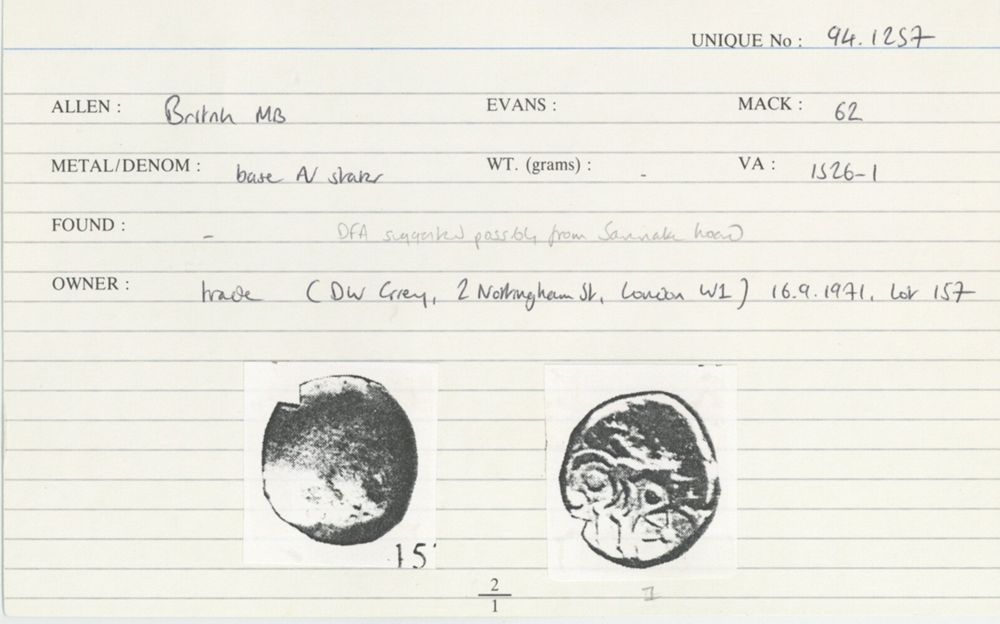 UNIQUE No : 94.1257
ALLEN : British MB EVANS : MACK : 62
METAL/DENOM : base AV stater WT. (grams) : - VA : 1526-1
FOUND : - DFA suggested possibly from Savernake hoard
OWNER : trade (DW Grey, 2 Nottingham St, London W1) 16.9.1971, Lot 157
15
2
1
I